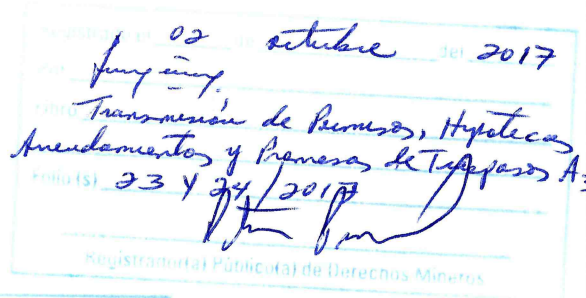 02 octubre del 2017
Transmisión de Permisos, Hipotecas
Arrendamientos y Promesas de Traspasos
Folio (s) 23 Y 24 / 2017
Registrador(a) Público(a) de Derechos Mineros